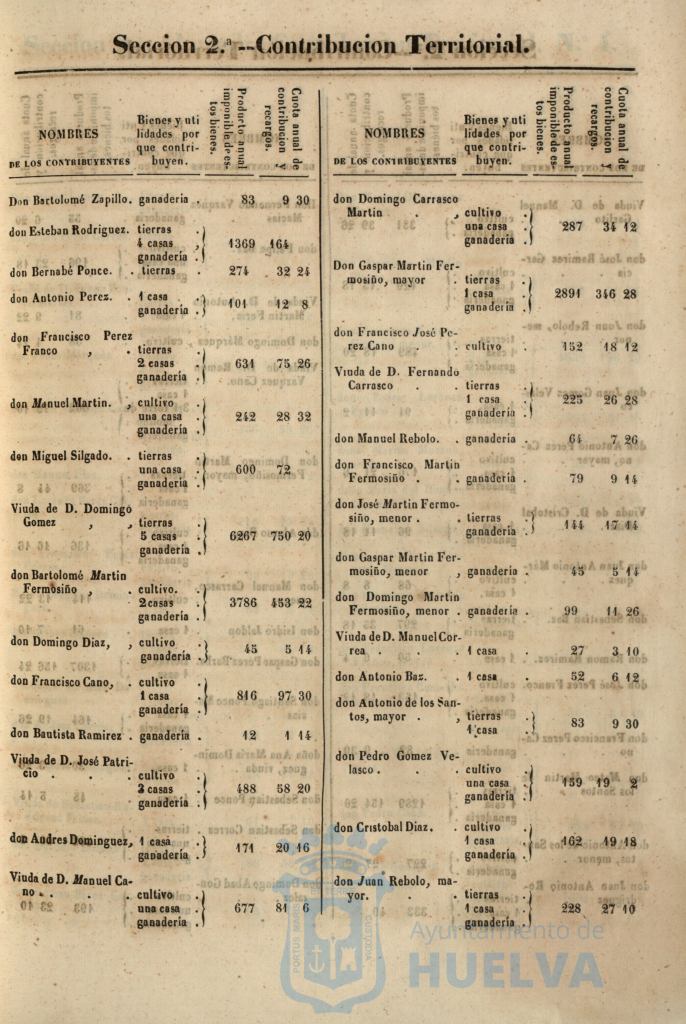 Seccion 2.ª--Contribucion Territorial.
NOMBRES
DE LOS CONTRIBUYENTES
Bienes y uti
lidades por
que contri-
buyen.
Producto anual
imponible de es-
tos bienes.
Cuota anual de
contribucion y
recargos.
Don Bartolomé Zapillo. ganaderia . 83 9 30
don Esteban Rodriguez. tierras .
4 casas , 1369 164
ganadería .
don Bernabé Ponce. . tierras . 274 32 24
don Antonio Perez. . 1 casa . 101 12 8
ganadería .
don Francisco Perez
Franco , . tierras .
2 casas . 631 75 26
ganadería .
don Manuel Martin. , cultivo .
una casa . 242 28 32
ganadería .
don Miguel Silgado. . tierras .
una casa . 600 72
ganadería .
Viuda de D. Domingo
Gomez , , tierras .
5 casas . 6267 750 20
ganadería .
don Bartolomé Martin
Fermosiño , . cultivo. .
2 casas . 3786 453 22
ganadería .
don Domingo Diaz, , cultivo . 45 5 14
ganadería .
don Francisco Cano, . cultivo .
1 casa . 816 97 30
ganadería .
don Bautista Ramirez . ganadería . 12 1 14
Viuda de D. José Patri-
cio . . . cultivo .
3 casas . 488 58 20
ganadería .
don Andres Dominguez, 1 casa . 171 20 16
ganadería .
Viuda de D. Manuel Ca-
no . . . cultivo .
una casa . 677 81 6
ganadería .
NOMBRES
DE LOS CONTRIBUYENTES
Bienes y uti
lidades por
que contri-
buyen.
Producto anual
imponible de es-
tos bienes.
Cuota anual de
contribucion y
recargos.
don Domingo Carrasco
Martin . , cultivo .
una casa . 287 34 12
ganadería .
Don Gaspar Martin Fer-
mosiño, mayor . tierras .
1 casa . 2891 346 28
ganadería .
don Francisco José Pe-
rez Cano . . cultivo . 152 18 12
Viuda de D. Fernando
Carrasco . . tierras .
1 casa . 225 26 28
ganadería .
don Manuel Rebolo. . ganadería . 64 7 26
don Francisco Martin
Fermosiño . . ganadería . 79 9 14
don José Martin Fermo-
siño, menor . . tierras . 144 17 14
ganadería .
don Gaspar Martin Fer-
mosiño, menor , ganadería . 45 5 14
don Domingo Martin
Fermosiño, menor . ganaderia . 99 11 26
Viuda de D. Manuel Cor-
rea . . . 1 casa . 27 3 10
don Antonio Baz. . 1 casa . 52 6 12
don Antonio de los San-
tos, mayor . , tierras . 83 9 30
1 casa .
don Pedro Gomez Ve-
lasco . . . cultivo .
una casa . 159 19 2
ganadería .
don Cristobal Diaz. . cultivo .
1 casa . 162 19 18
ganadería .
don Juan Rebolo, ma-
yor. . . tierras .
1 casa . 228 27 10
ganadería .
PORTUS MARIS
CUSTODIA
Ayuntamiento de
HUELVA